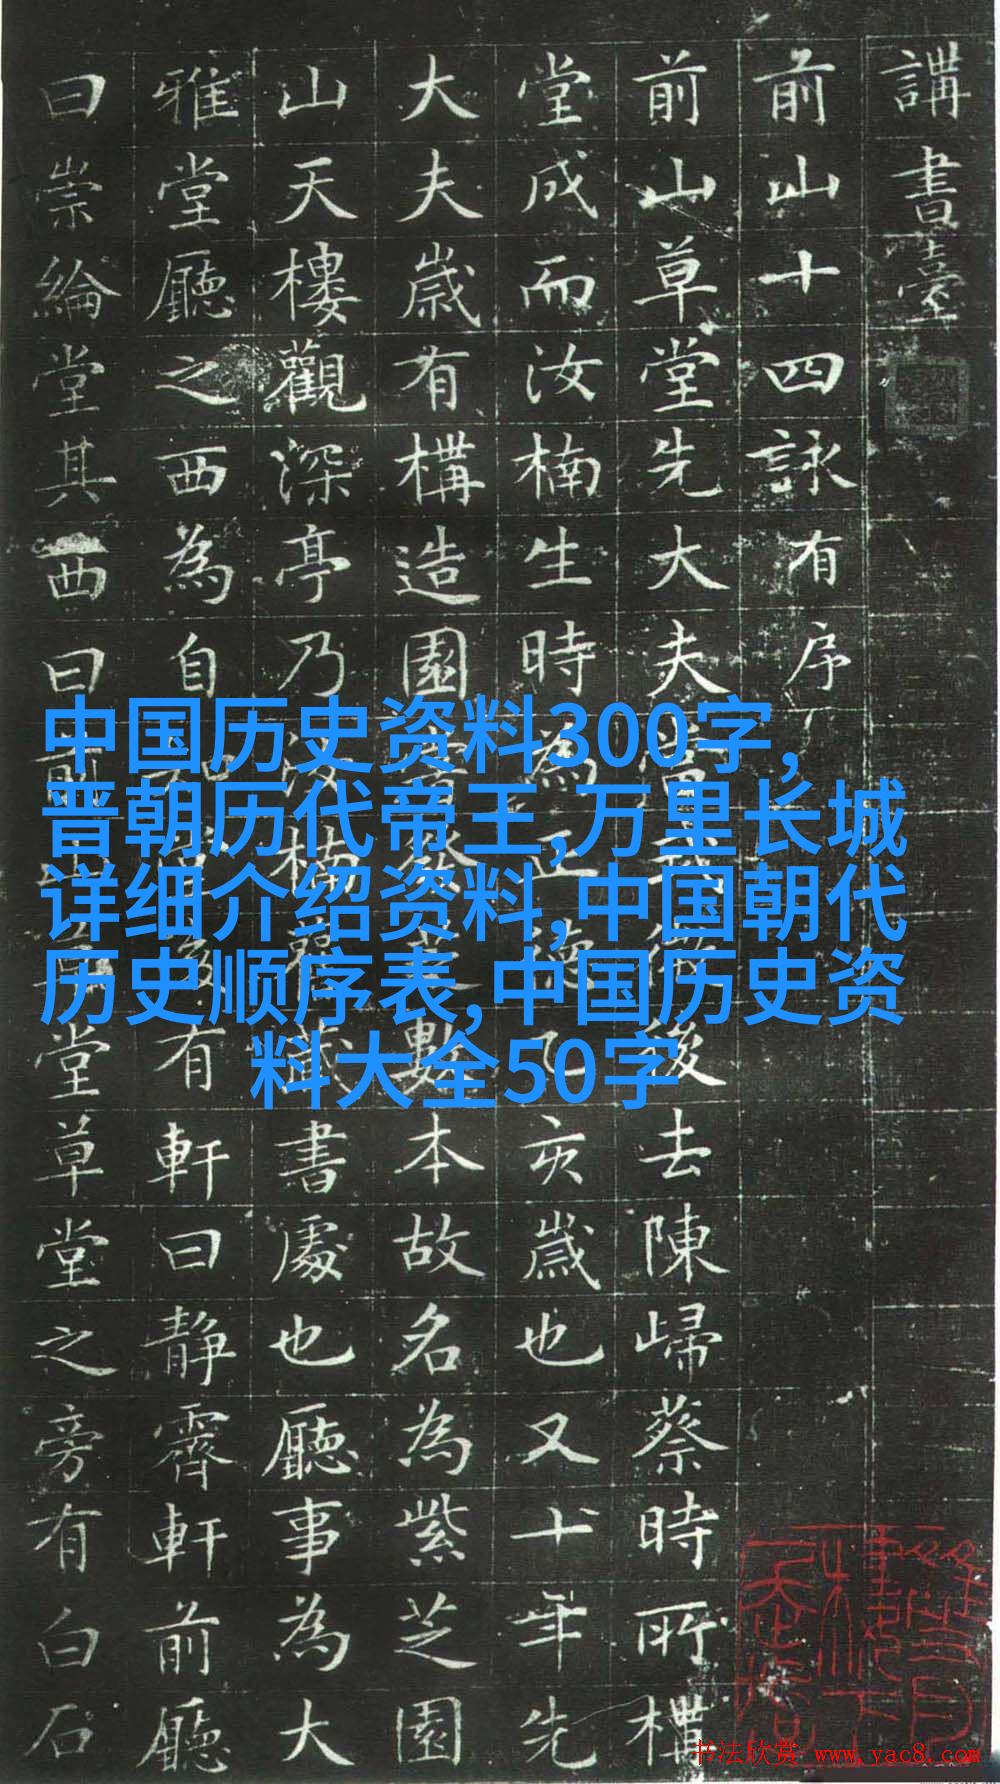 講書臺
前山十四詠有序
前山草堂先大夫
後去陳歸蔡時所構
堂成而汝楠生時為正
亥歲也又十年先
大夫歲有構造園
數本故名為紫芝園
山天樓觀深亭乃
書處也廳事為大
雅堂廳之西為自
有軒曰靜霽軒前廳
曰崇綸堂其西曰
堂草堂之旁有白石
中国历史资料300字,
晋朝历代帝王,万里长城
详细介绍资料,中国朝代
历史顺序表,中国历史资
料大全50字
书法欣赏 www.yac8.com